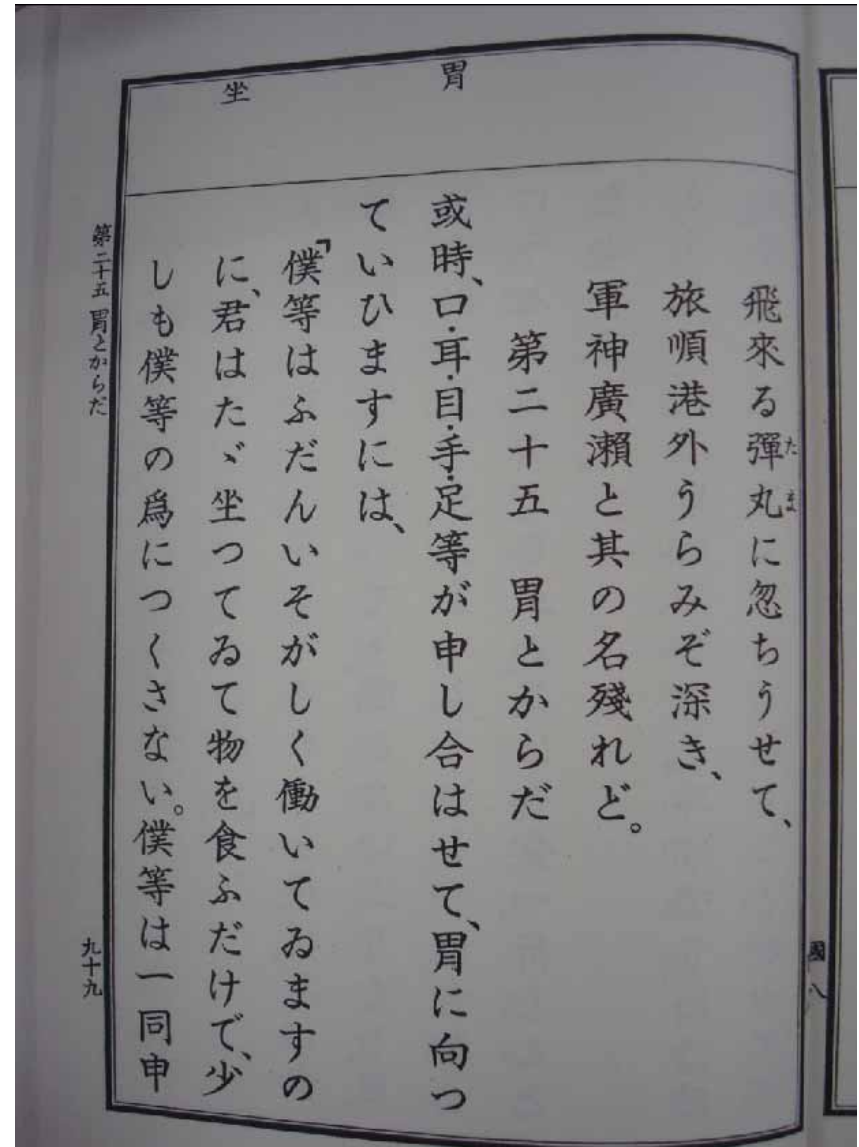 胃
坐
飛來る彈丸に忽ちうせて、
たま
旅順港外うらみぞ深き、
軍神廣瀬と其の名殘れど。
第二十五　胃とからだ
或時、口・耳・目・手・足等が申し合はせて、胃に向つ
ていひますには、
「僕等はふだんいそがしく働いてゐますの
に、君はたゞ坐つてゐて物を食ふだけで、少
しも僕等の爲につくさない。僕等は一同申
第二十五 胃とからだ
九十九
國八